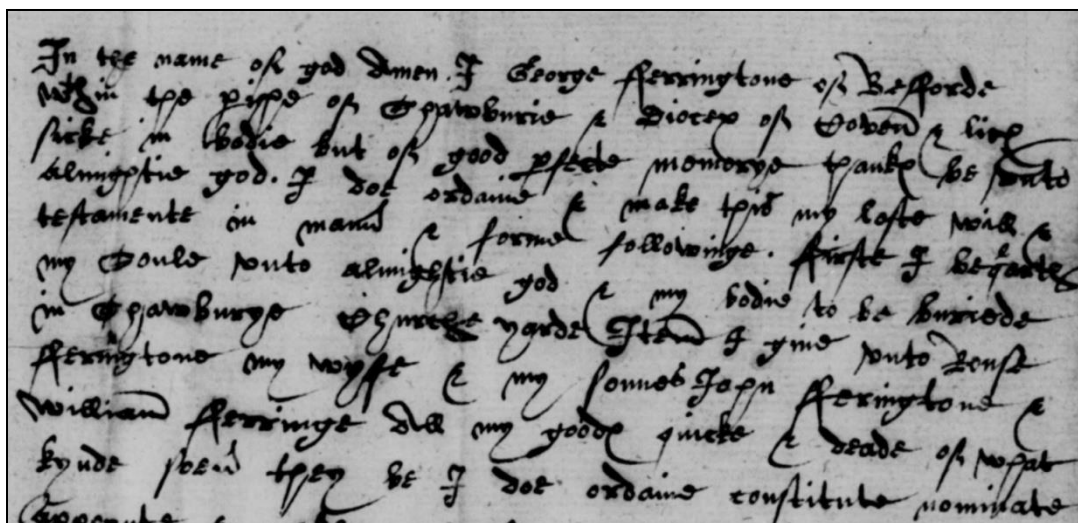 In the name of god Amen. I George fferringtone of Besforde
wthin the pishe of Shawburie & Diocex of Coven & lich
sicke in bodie but of good pfecte memorye thankes be vnto
almightie god. I doe ordaine & make this my laste will &
testamente in mann & forme followinge. ffirste I beqeath
my Soule vnto almightie god & my bodie to be buriede
in Shawburye Churche yarde Item I give vnto
fferingtone my wyffe & my sonnes John fferingtone &
William fferringe All my goods quicke & deade of what
kynde soeu they be I doe ordaine constitute nominate